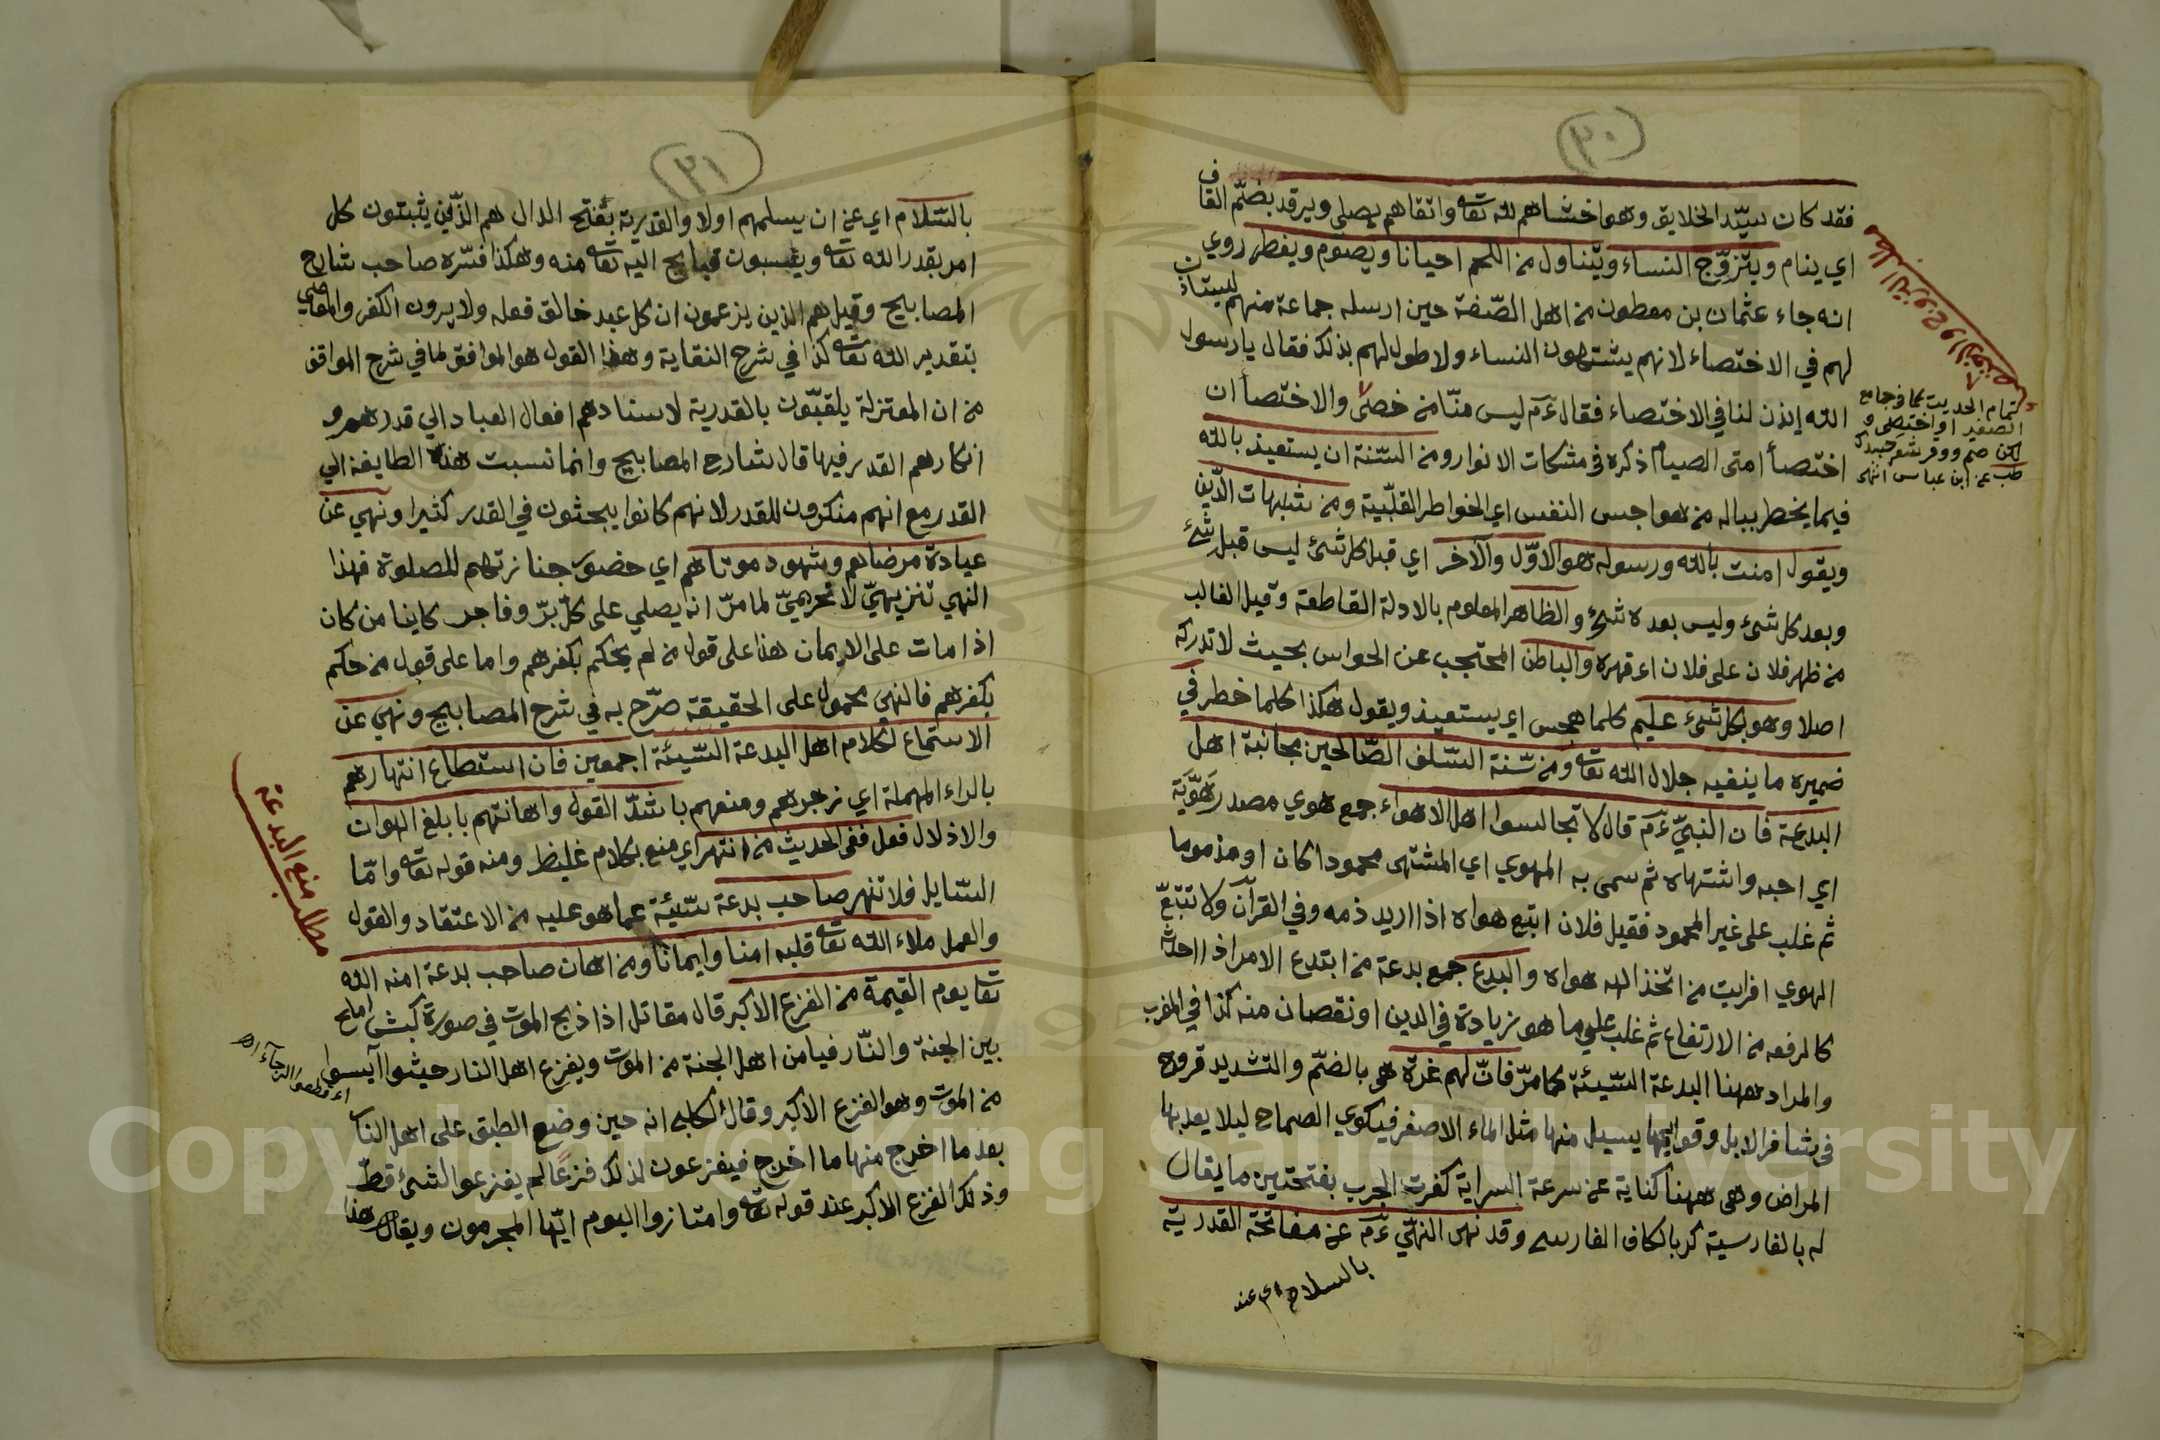 (٣٠)
فقد كان سيّد الخلايق وهو اخشاهم لله تعالى واتقاهم يصلي ويرقد بضمّ القاف
اي ينام ويتزوّج النساء ويتناول من اللحم احيانا ويصوم ويفطر روي
انه جاء عثمان بن مظعون من اهل الصّفة حين ارسله جماعة منهم ليستأذن
لهم في الاختصاء لانهم يشتهون النساء ولا طول لهم بذلك فقال يا رسول
الله إئذن لنا في الاختصاء فقال عم ليس منّا من خصى والاختصا ان
اختصأ امتى الصيام ذكره في مشكات الانوار ومن السّنة ان يستعيذ بالله
فيما يخطر بباله من هواجس النفس اي الخواطر القلبّية ومن شبهات الدّين
ويقول امنت بالله ورسوله هو الاوّل والآخر اي قبل كل شئ ليس قبل شئ
وبعد كل شئ وليس بعده شئ والظاهر المعلوم بالادلة القاطعة وقيل الغالب
من ظهر فلان على فلان اء قهره والباطن المحتجب عن الحواس بحيث لا تدركه
اصلا وهو بكل شئ عليم كلما هجس اي يستعيذ ويقول هكذا كلما خطر في
ضميره ما ينفيه جلال الله تعالى ومن سّنة السّلف الصّالحين مجانبة اهل
البدعة فان النبيّ عم قال لا تجالسوا اهل الاهواء جمع هوي مصدر هَوِيَه
اي احبه واشتهاه ثم سمى به المهوي اي المشتهى محمودا كان او مذموما
ثم غلب على غير المحمود فقيل فلان ابتع هواه اذا اريد ذمه وفي القرآن ولا تتبّع
الهوي افرايت من اتخذ الهه هواه والبدع جمع بدعة من ابتدع الامر اذا احدثه
كالرفعه من الارتفاع ثم غلب على ما هو زيادة في الدين او نقصان منه كذا في المغرب
والمراد ههنا البدعة السّيئة كما مرّ فانّ لهم غرة هى بالضمّ والتشديد قروح
فى مشافر الابل وقوايمها يسيل منها مثل الماء الاصفر فيكوي الصحاح ليلا يعديها
المراض وهى ههنا كناية عن سرعة السراية كغرت الجرب بفتحتين ما يقال
له بالفارسية كر بالكاف الفارسى وقد نهى النبّي عم عن مفاتحة القدرية
بالسلام اي عند
مطلب التزوج والاختصاء
تمام الحديث كما فى جامع
الصغير او اختصى و
لكن صم ووفر شعر جسدك
طب عن ابن عباس انتهى
(٣١)
بالسّلام اي عن ان يسلمهم اولا والقدرية بفتح الدال هم الذّين يثبتون كل
امر بقدر الله تعالى وينسبون قبايح اليه تعالى منه وهكذا فسّره صاحب شارح
المصابيح وقيل هم الذين يزعمون ان كل عبد خالق فعله ولا يرون الكفر والمعاصي
بتقدير الله تعالى كذا في شرح النقاية وهذا القول هو الموافق لما في شرح المواقف
من ان المعتزلة يلقبّون بالقدرية لاسنادهم افعال العباد الي قدرهم و
انكارهم القدر فيها قال شارح المصابيح وانما نسبت هذه الطايفة الي
القدر مع انهم منكرون للقدر لانهم كانوا يبحثون في القدر كثيرا ونهي عن
عيادة مرضاهم وشهود موتاهم اي حضور جنازتهم للصلوة فهذا
النهي تنزيهيّ لا تحريميّ لما مرّ انه يصلي على كلّ برّ وفاجر كاينا من كان
اذا مات على الايمان هذا على قول من لم يحكم بكفرهم واما على قول من حكم
بكفرهم فالنهي محمول على الحقيقة صرّح به في شرح المصابيح ونهي عن
الاستماع لكلام اهل البدعة السّيئة اجمعين فان استطاع انتهارهم
بالراء المهملة اي زجرهم ومنعهم باشدّ القول واهانتهم بابلغ الهوان
والاذلال فعل ففى الحديث من انتهر اي منع بكلام غليظ ومنه قوله تعالى وامّا
السّايل فلا تنهر صاحب بدعة سيّئة عما هو عليه من الاعتقاد والقول
والعمل ملاء الله تعالى قلبه امنا وايمانا ومن اهان صاحب بدعة امنه الله
تعا يوم القيمة من الفزع الاكبر قال مقاتل اذا ذبح الموت في صورة كبش املح
بين الجنة والنّار فيامن اهل الجنة من الموت ويفزع اهل النار حيثوا آيسوا
من الموت وهو الفزع الاكبر وقال الكلبى انه حين وضع الطبق على اهل النار
بعد ما اخرج منها ما اخرج فيفزعون لذلك فزعًا لم يفزعوا الشئ قطّ
وذلك الفزع الاكبر عند قوله تعالى وامتازوا اليوم ايّها المجرمون ويقال هذا
مطلب منع البدعة
اء قطعوا الرجآء اه
Copyright © King Saud University